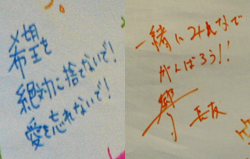 希望を
絶対に捨てないで!
愛を忘れないで!
一緒にみんなで
がんばろう!!
長友